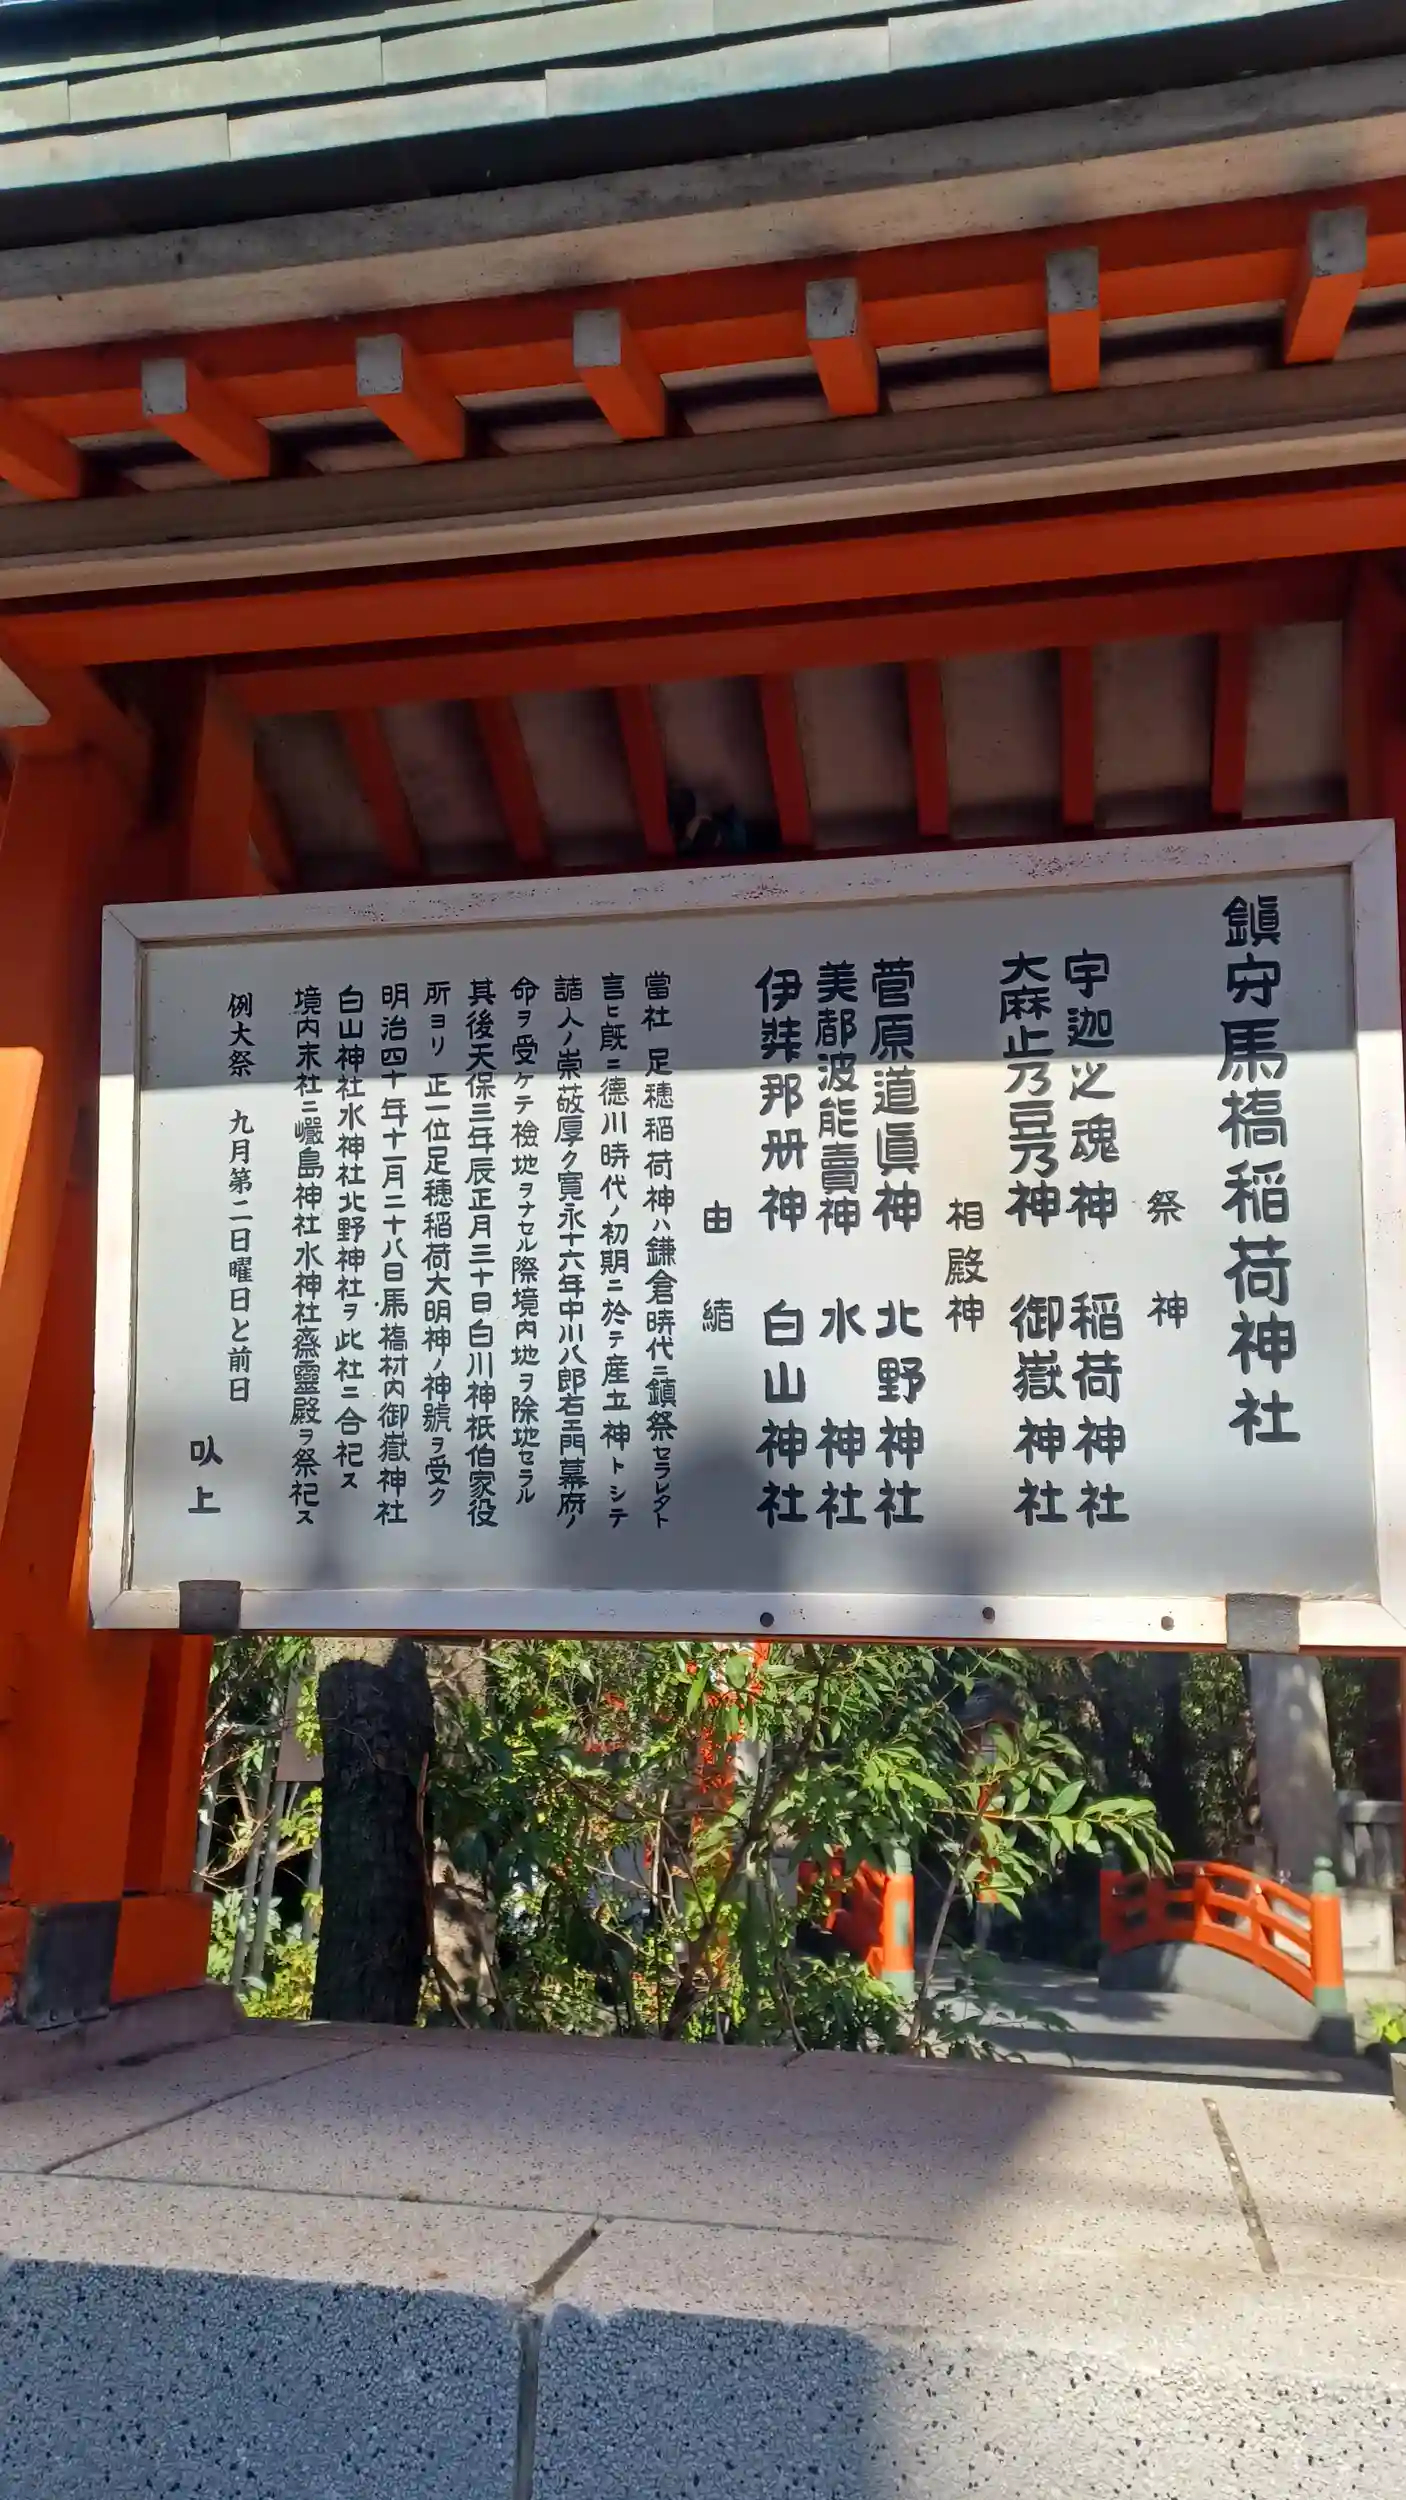 鎮守馬橋稲荷神社
祭神
宇迦之魂神 稲荷神社
大麻止乃豆乃神 御嶽神社
相殿神
菅原道眞神 北野神社
美都波能賣神 水神社
伊弉那册神 白山神社
由緒
當社 足穂稲荷神ハ鎌倉時代ニ鎮祭セラレタト
言ヒ旣ニ德川時代ノ初期ニ於テ産土神トシテ
諸人ノ崇敬厚ク寛永十六年中川八郎右エ門幕府ノ
命ヲ受ケテ檢地ヲナセル際境内地ヲ除地セラル
其後天保三年辰正月三十日白川神祇伯家役
所ヨリ正一位足穂稲荷大明神ノ神號ヲ受ク
明治四十年十一月二十八日馬橋村内御嶽神社
白山神社水神社北野神社ヲ此社ニ合祀ス
境内末社ニ巖島神社水神社齋靈殿ヲ祭祀ス
例大祭 九月第二日曜日と前日
以上